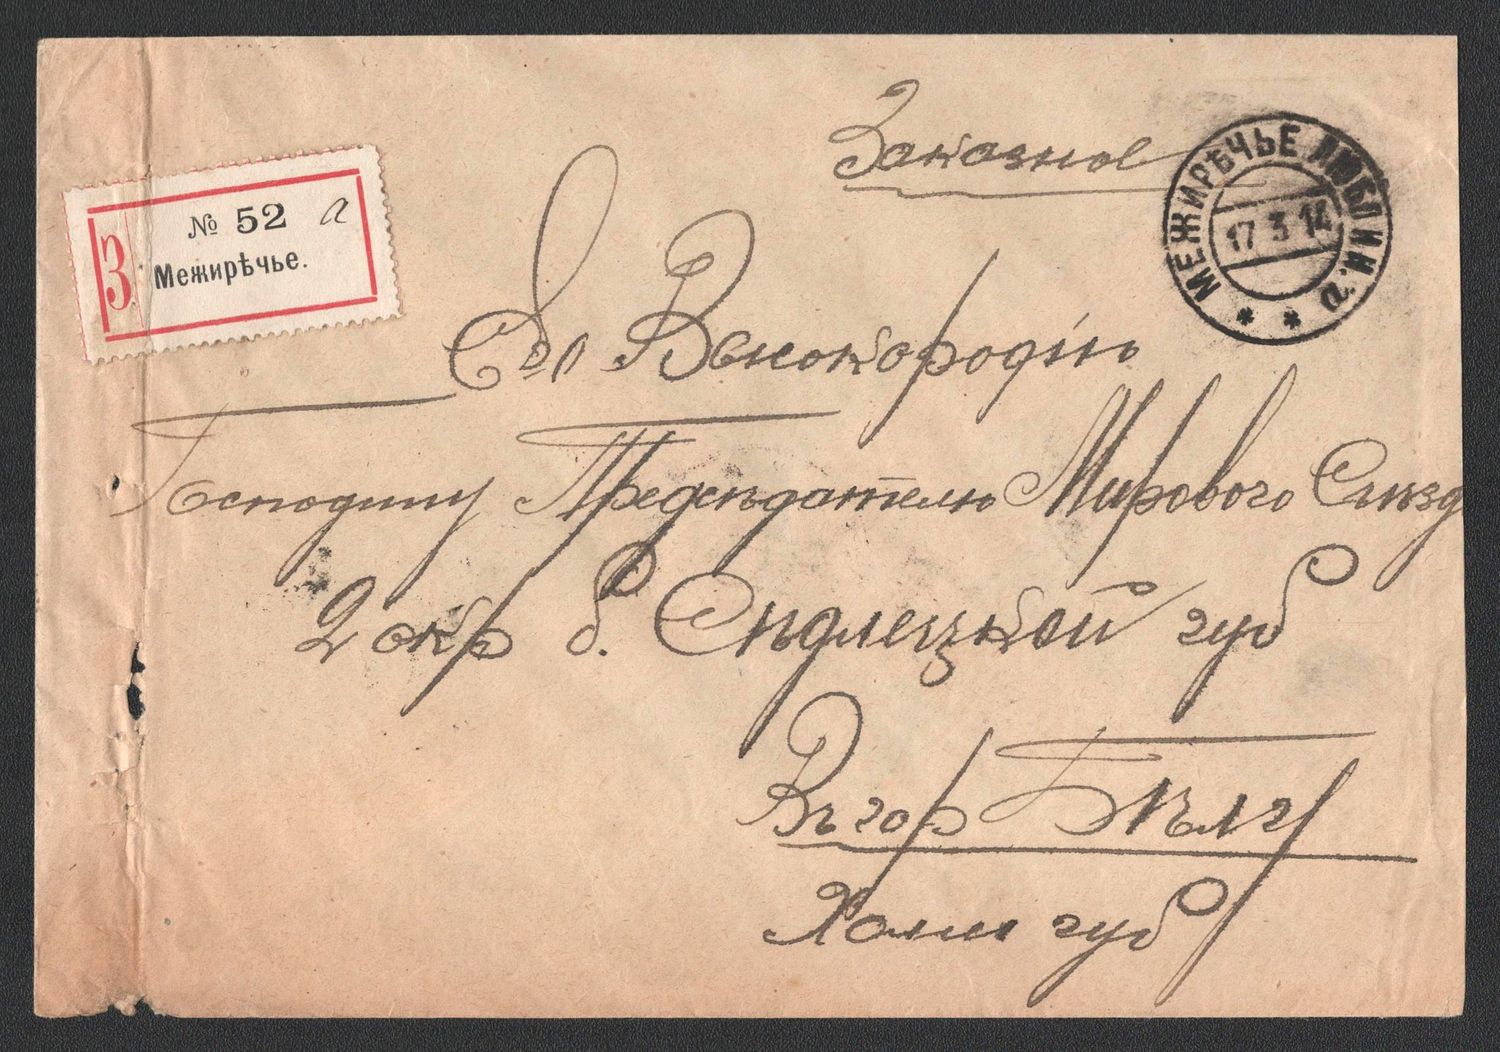 Заказное
МЕЖИРѢЧЬЕ ЛЮБЛИН. Г.
17 3 14
З
№ 52 а
Межирѣчье.
Его Высокородію
Господину Предсѣдателю Мирового Съѣзд
2 окр б. Сѣдлецкой губ
Въ гор Бѣлу
Холм губ